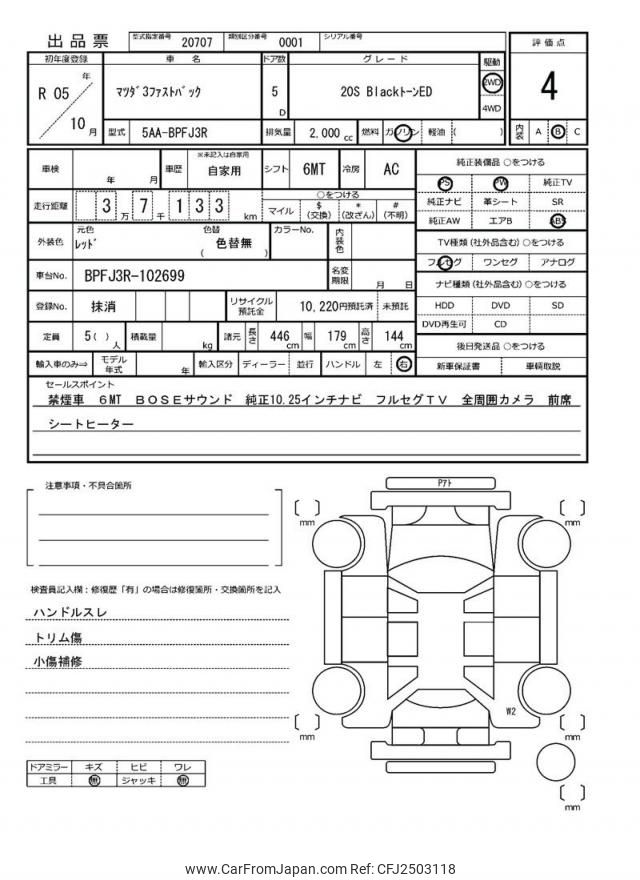 出品票 型式指定番号 20707 類別区分番号 0001 シリアル番号
初年度登録 車名 ドア数 グレード 駆動 評価点
R 05 年 10 月 マツダ3ファストバック 5 D 20S BlackトーンED 2WD 4WD 4
型式 5AA-BPFJ3R 排気量 2,000 cc 燃料 ガソリン 軽油 ( ) 内装 A B C
車検 年 月 車歴 ※未記入は自家用 自家用 シフト 6MT 冷房 AC 純正装備品 ○をつける
PS PW 純正TV
走行距離 3 万 7 千 1 3 3 km ○をつける
マイル $ (交換) * (改ざん) # (不明)
純正ナビ 革シート SR
純正AW エアB ABS
外装色 元色 レッド 色替 色替無 ( ) カラーNo. 内装色
TV種類 (社外品含む) ○をつける
フルセグ ワンセグ アナログ
車台No. BPFJ3R-102699 名変期限 月 日
ナビ種類 (社外品含む) ○をつける
登録No. 抹消 リサイクル預託金 10,220円預託済 未預託
HDD DVD SD
DVD再生可 CD
定員 5 ( ) 人 積載量 kg 諸元 長さ 446 cm 幅 179 cm 高さ 144 cm
後日発送品 ○をつける
輸入車のみ⇒ モデル年式 年 輸入区分 ディーラー 並行 ハンドル 左 右
新車保証書 車輌取説
セールスポイント
禁煙車 6MT BOSEサウンド 純正10.25インチナビ フルセグTV 全周囲カメラ 前席
シートヒーター
注意事項・不具合箇所
検査員記入欄:修復歴「有」の場合は修復箇所・交換箇所を記入
ハンドルスレ
トリム傷
小傷補修
ドアミラー キズ ヒビ ワレ
工具 無 ジャッキ 無
Pｱﾄ
[ ] mm
[ ] mm
W2
[ ] mm
[ ] mm
[ ] mm
www.CarFromJapan.com Ref: CFJ2503118